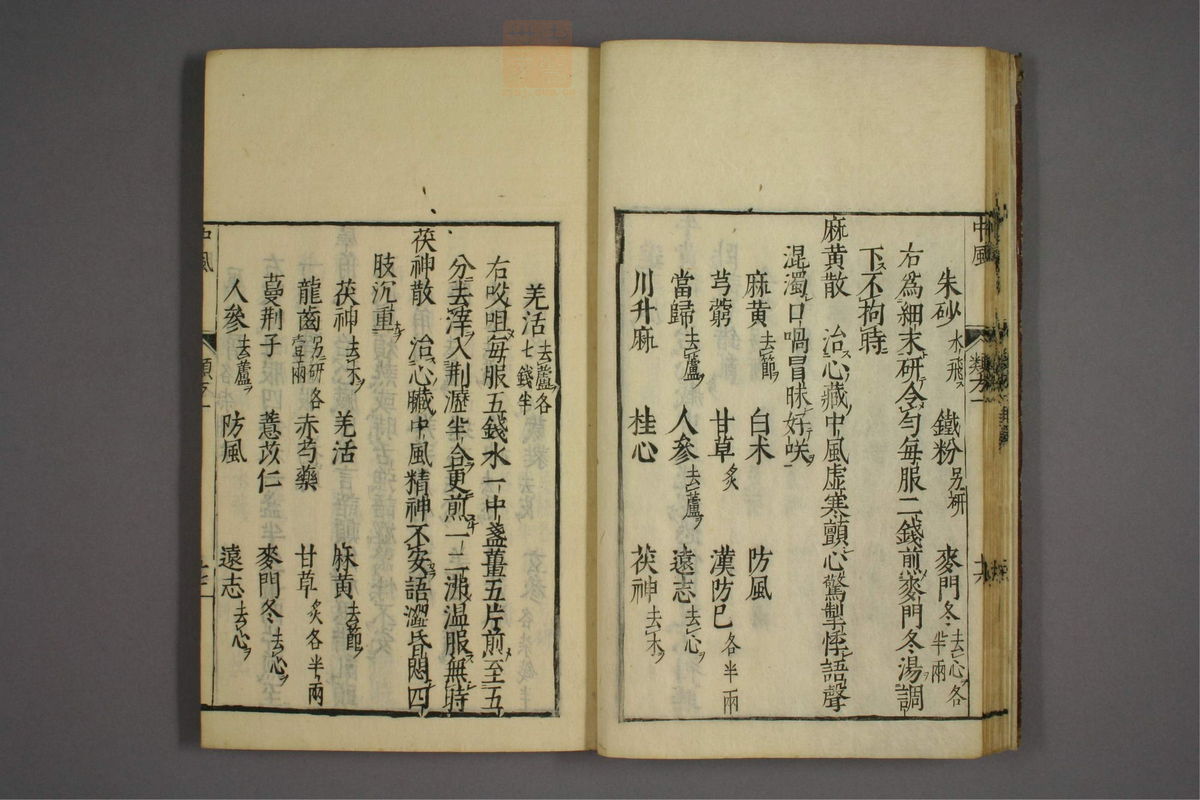 中風
朱砂 水飛 鐵粉 另研 麥門冬 去心各半兩
右為細末研令勻每服二錢煎麥門冬湯調
下不拘時
麻黃散 治心藏中風虛寒顫心驚掣悸語聲
混濁口喎冒昧好咲
麻黃 去節 白朮 防風
芎藭 甘草 炙 漢防己 各半兩
當歸 去蘆 人參 去蘆 遠志 去心
川升麻 桂心 茯神 去木
羌活 去蘆各七錢半
右㕮咀每服五錢水一中盞薑五片煎至五
分去滓入荆瀝半合更煎一二沸温服無時
茯神散 治心臟中風精神不安語澀昏悶四
肢沉重
茯神 去木 羌活 麻黃 去節
龍齒 另研各壹兩 赤芍藥 甘草 炙各半兩
蔓荆子 薏苡仁 麥門冬 去心
人參 去蘆 防風 遠志 去心